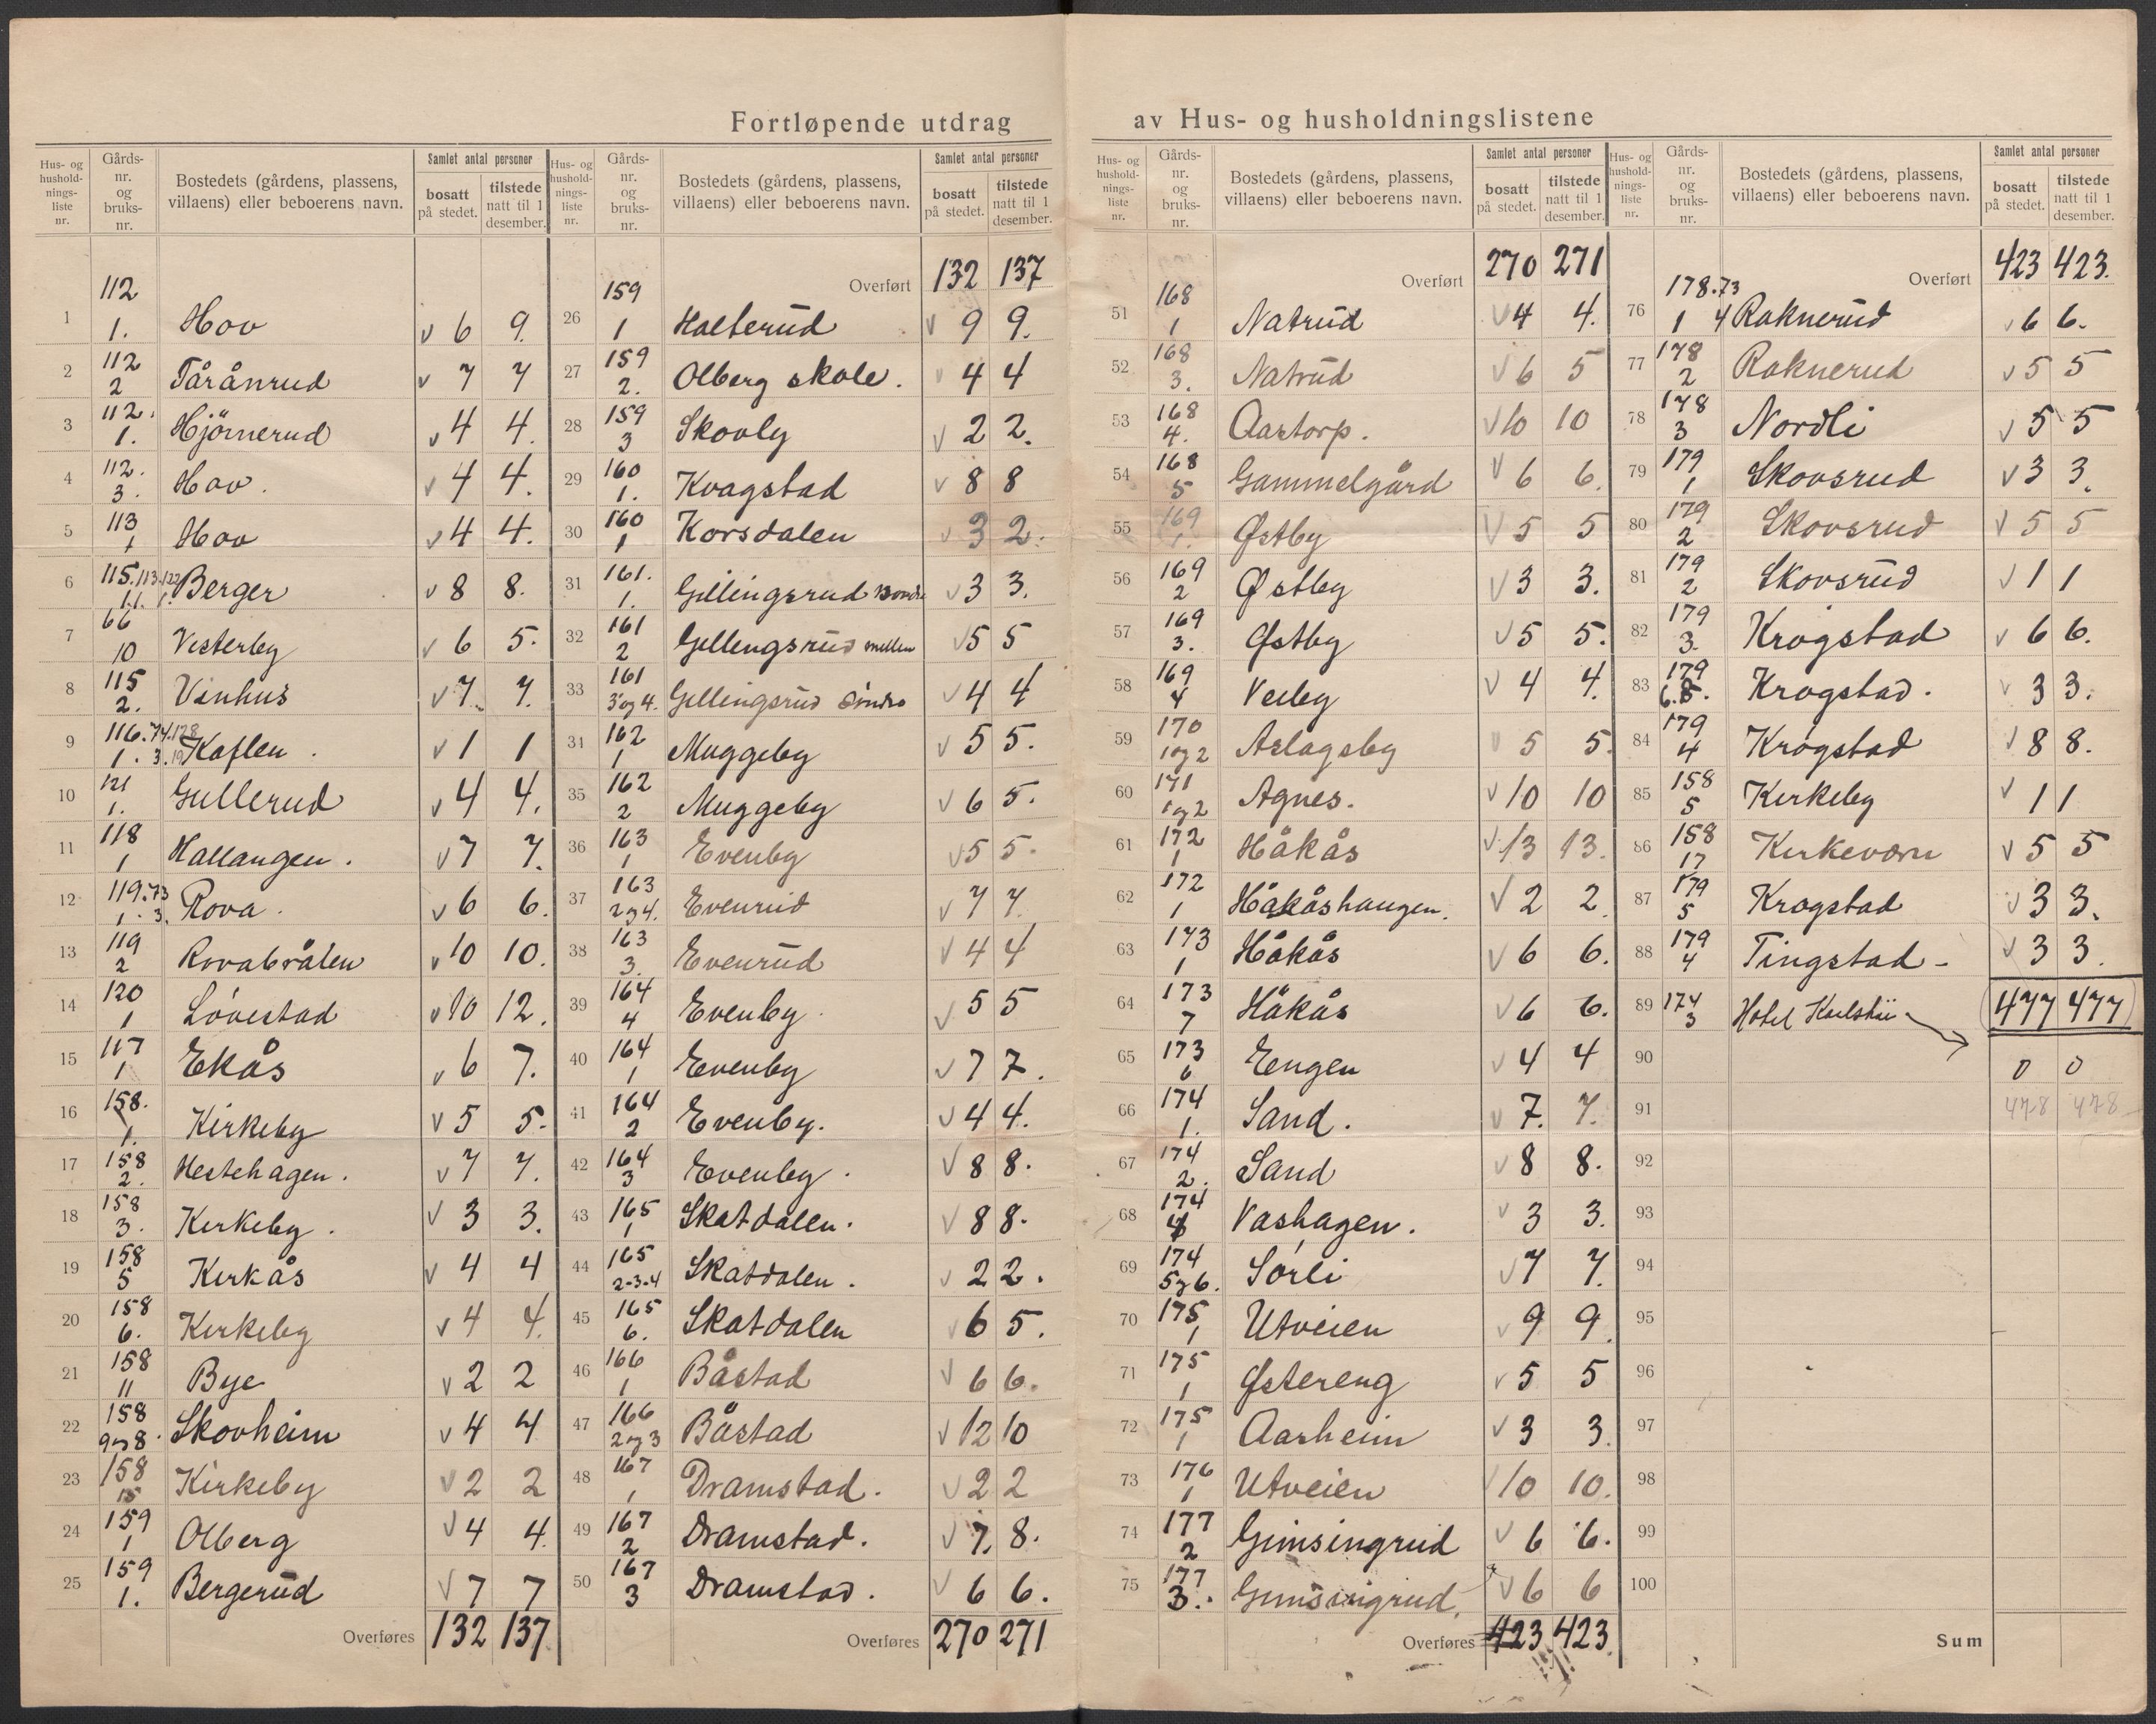 Fortløpende utdrag av Hus- og husholdningslistene
Hus- og husholdnings-liste nr. Gårds-nr. og bruks-nr. Bostedets (gårdens, plassens, villaens) eller beboerens navn. Samlet antal personer bosatt på stedet. tilstede natt til 1 desember.
1 112 1. Hov v 6 9.
2 112 2 Tårånrud v 7 7
3 112. 1. Hjörnerud v 4 4.
4 112. 3. Hov. v 4 4.
5 113 1 Hov v 4 4.
6 115. 113. 122 1. 1. 1. Berger v 8 8.
7 66 10 Vesterby v 6 5.
8 115 2. Vinhus v 7 7.
9 116. 74. 128 1. 3. 19 Kaflen. v 1 1
10 121 1. Gullerud v 4 4.
11 118 1 Hallangen. v 7 7.
12 119. 73 1. 3. Rova. v 6 6.
13 119 2 Rovabråten v 10 10.
14 120 1 Lövestad v 10 12.
15 117 1 Ekås v 6 7.
16 158. 1. Kirkeby v 5 5.
17 158 2. Hestehagen. v 7 7.
18 158 3. Kirkeby. v 3 3.
19 158 5 Kirkås v 4 4
20 158 6. Kirkeby v 4 4.
21 158 11 Bye v 2 2
22 158 9og8. Skovheim v 4 4
23 158 15 Kirkeby v 2 2
24 159 1 Olberg v 4 4.
25 159 1. Bergerud v 7 7
Overføres 132 137
Hus- og husholdnings-liste nr. Gårds-nr. og bruks-nr. Bostedets (gårdens, plassens, villaens) eller beboerens navn. Samlet antal personer bosatt på stedet. tilstede natt til 1 desember.
Overført 132 137
26 159 1 Halterud v 9 9.
27 159 2. Olberg skole. v 4 4
28 159 3 Skovly v 2 2.
29 160 1. Kvagstad v 8 8
30 160 1 Korsdalen v 3 2.
31 161. 1. Gillingsrud vondre v 3 3.
32 161 2 Gillengsrud mellem v 5 5
33 161 3og4. Gillingsrud söndre v 4 4
34 162 1 Muggeby v 5 5.
35 162 2 Muggeby v 6 5.
36 163 1 Evenby v 5 5.
37 163 2og4. Evenrud v 7 7.
38 163 3. Evenrud v 4 4
39 164 4 Evenby. v 5 5
40 164 1 Evenby v 7 7.
41 164 2 Evenby. v 4 4.
42 164 3 Evenby. v 8 8.
43 165 1 Skatdalen. v 8 8.
44 165 2-3-4 Skatdalen. v 2 2.
45 165 6. Skatdalen v 6 5.
46 166 1 Båstad v 6 6.
47 166 2og3 Båstad v 12 10
48 167 1 Dramstad. v 2 2
49 167 2 Dramstad. v 7. 8.
50 167 3 Dramstad. v 6 6.
Overføres 270 271
Hus- og husholdnings-liste nr. Gårds-nr. og bruks-nr. Bostedets (gårdens, plassens, villaens) eller beboerens navn. Samlet antal personer bosatt på stedet. tilstede natt til 1 desember.
Overført 270 271
51 168 1 Natrud v 4 4.
52 168 3. Natrud v 6 5
53 168 4. Aastorp. v 10 10
54 168 5 Gammelgård v 6 6.
55 169 1. Østby v 5 5
56 169 2 Østby v 3 3.
57 169 3. Østby v 5 5.
58 169 4 Veeby v 4 4.
59 170 1og2 Aslagsby v 5 5.
60 171 1og2 Agnes. v 10 10
61 172 1 Håkås v 13 13.
62 172 1 Håkåshaugen. v 2 2.
63 173 1 Håkås v 6 6.
64 173 7 Håkås v 6 6.
65 173 6 Eengen v 4 4
66 174 1. Sand. v 7. 7.
67 174 2. Sand v 8 8.
68 174 4 Vashagen. v 3 3.
69 174 5og6. Sörli v 7 7.
70 175 1 Utveien v 9 9.
71 175 1 Østereng v 5 5
72 175 1 Aasheim v 3 3.
73 176 1 Utveien v 10 10.
74 177 2 Gimsingrud v 6 6.
75 177 3. Gimsingrud. v 6 6
Overføres 423 423
Hus- og husholdnings-liste nr. Gårds-nr. og bruks-nr. Bostedets (gårdens, plassens, villaens) eller beboerens navn. Samlet antal personer bosatt på stedet. tilstede natt til 1 desember.
Overført 423 423.
76 178. 73 1 4 Raknerud v 6 6.
77 178 2 Raknerud v 5 5
78 178 3 Nordli v 5 5
79 179 1 Skovsrud v 3 3.
80 179 2 Skovsrud v 5 5
81 179 2 Skovsrud v 1 1
82 179 3. Krogstad v 6 6.
83 179 6.8. Krogstad. v 3 3.
84 179 4 Krogstad v 8 8.
85 158 5 Kirkeby v 1 1
86 158 17 Kirkevorn v 5 5
87 179 5 Krogstad v 3 3.
88 179 4 Tingstad - v 3 3.
89 174 3 Hotel 477 477
90 0 0
91 478 478
92
93
94
95
96
97
98
99
100
Sum